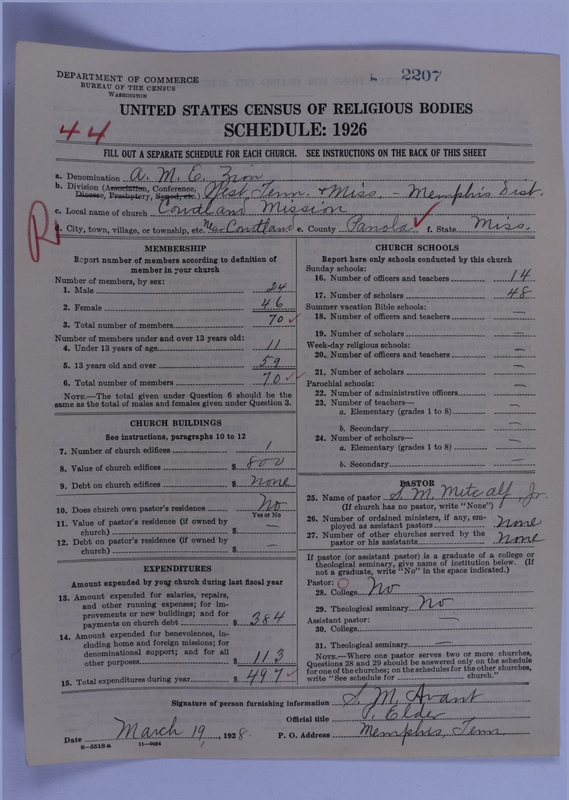 2207
DEPARTMENT OF COMMERCE
BUREAU OF THE CENSUS
WASHINGTON
UNITED STATES CENSUS OF RELIGIOUS BODIES
SCHEDULE: 1926
44
FILL OUT A SEPARATE SCHEDULE FOR EACH CHURCH. SEE INSTRUCTIONS ON THE BACK OF THIS SHEET
a. Denomination A. M. E. Zion
b. Division (Association, Conference, Diocese, Presbytery, Synod, etc.) West Tenn. & Miss. - Memphis Dist.
c. Local name of church Courtland Mission
R
d. City, town, village, or township, etc. Near Courtland e. County Panola f. State Miss.
MEMBERSHIP
Report number of members according to definition of
member in your church
Number of members, by sex:
1. Male 24
2. Female 46
3. Total number of members 70
Number of members under and over 13 years old:
4. Under 13 years of age 11
5. 13 years old and over 59
6. Total number of members 70
NOTE.—The total given under Question 6 should be the
same as the total of males and females given under Question 3.
CHURCH BUILDINGS
See instructions, paragraphs 10 to 12
7. Number of church edifices 1
8. Value of church edifices $ 800
9. Debt on church edifices $ none
10. Does church own pastor's residence No
Yes or No
11. Value of pastor's residence (if owned by
church) $ —
12. Debt on pastor's residence (if owned by
church) $ —
EXPENDITURES
Amount expended by your church during last fiscal year
13. Amount expended for salaries, repairs,
and other running expenses; for im-
provements or new buildings; and for
payments on church debt $ 384
14. Amount expended for benevolences, in-
cluding home and foreign missions; for
denominational support; and for all
other purposes $ 113
15. Total expenditures during year $ 497
CHURCH SCHOOLS
Report here only schools conducted by this church
Sunday schools:
16. Number of officers and teachers 14
17. Number of scholars 48
Summer vacation Bible schools:
18. Number of officers and teachers —
19. Number of scholars —
Week-day religious schools:
20. Number of officers and teachers —
21. Number of scholars —
Parochial schools:
22. Number of administrative officers —
23. Number of teachers—
a. Elementary (grades 1 to 8) —
b. Secondary —
24. Number of scholars—
a. Elementary (grades 1 to 8) —
b. Secondary —
PASTOR
25. Name of pastor S. M. Metcalf, Jr.
(If church has no pastor, write "None")
26. Number of ordained ministers, if any, em-
ployed as assistant pastors none
27. Number of other churches served by the
pastor or his assistants none
If pastor (or assistant pastor) is a graduate of a college or
theological seminary, give name of institution below. (If
not a graduate, write "No" in the space indicated.)
Pastor:
28. College No
29. Theological seminary No
Assistant pastor:
30. College —
31. Theological seminary —
NOTE.—Where one pastor serves two or more churches,
Questions 28 and 29 should be answered only on the schedule
for one of the churches; on the schedules for the other churches,
write "See schedule for church."
Signature of person furnishing information S. M. Avant
Official title P. Elder
Date March 19, 1928. P. O. Address Memphis, Tenn
8—5518 a 11—9064